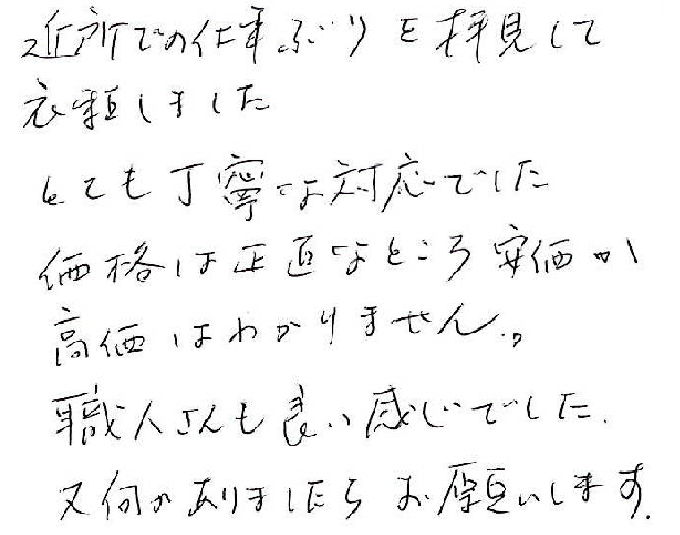 近所での仕事ぶりを拝見して
衣頼しました
とても丁寧な対応でした
価格は正直なところ安価か
高価はわかりません。
職人さんも良い感じでした.
又何かありましたらお願いします.